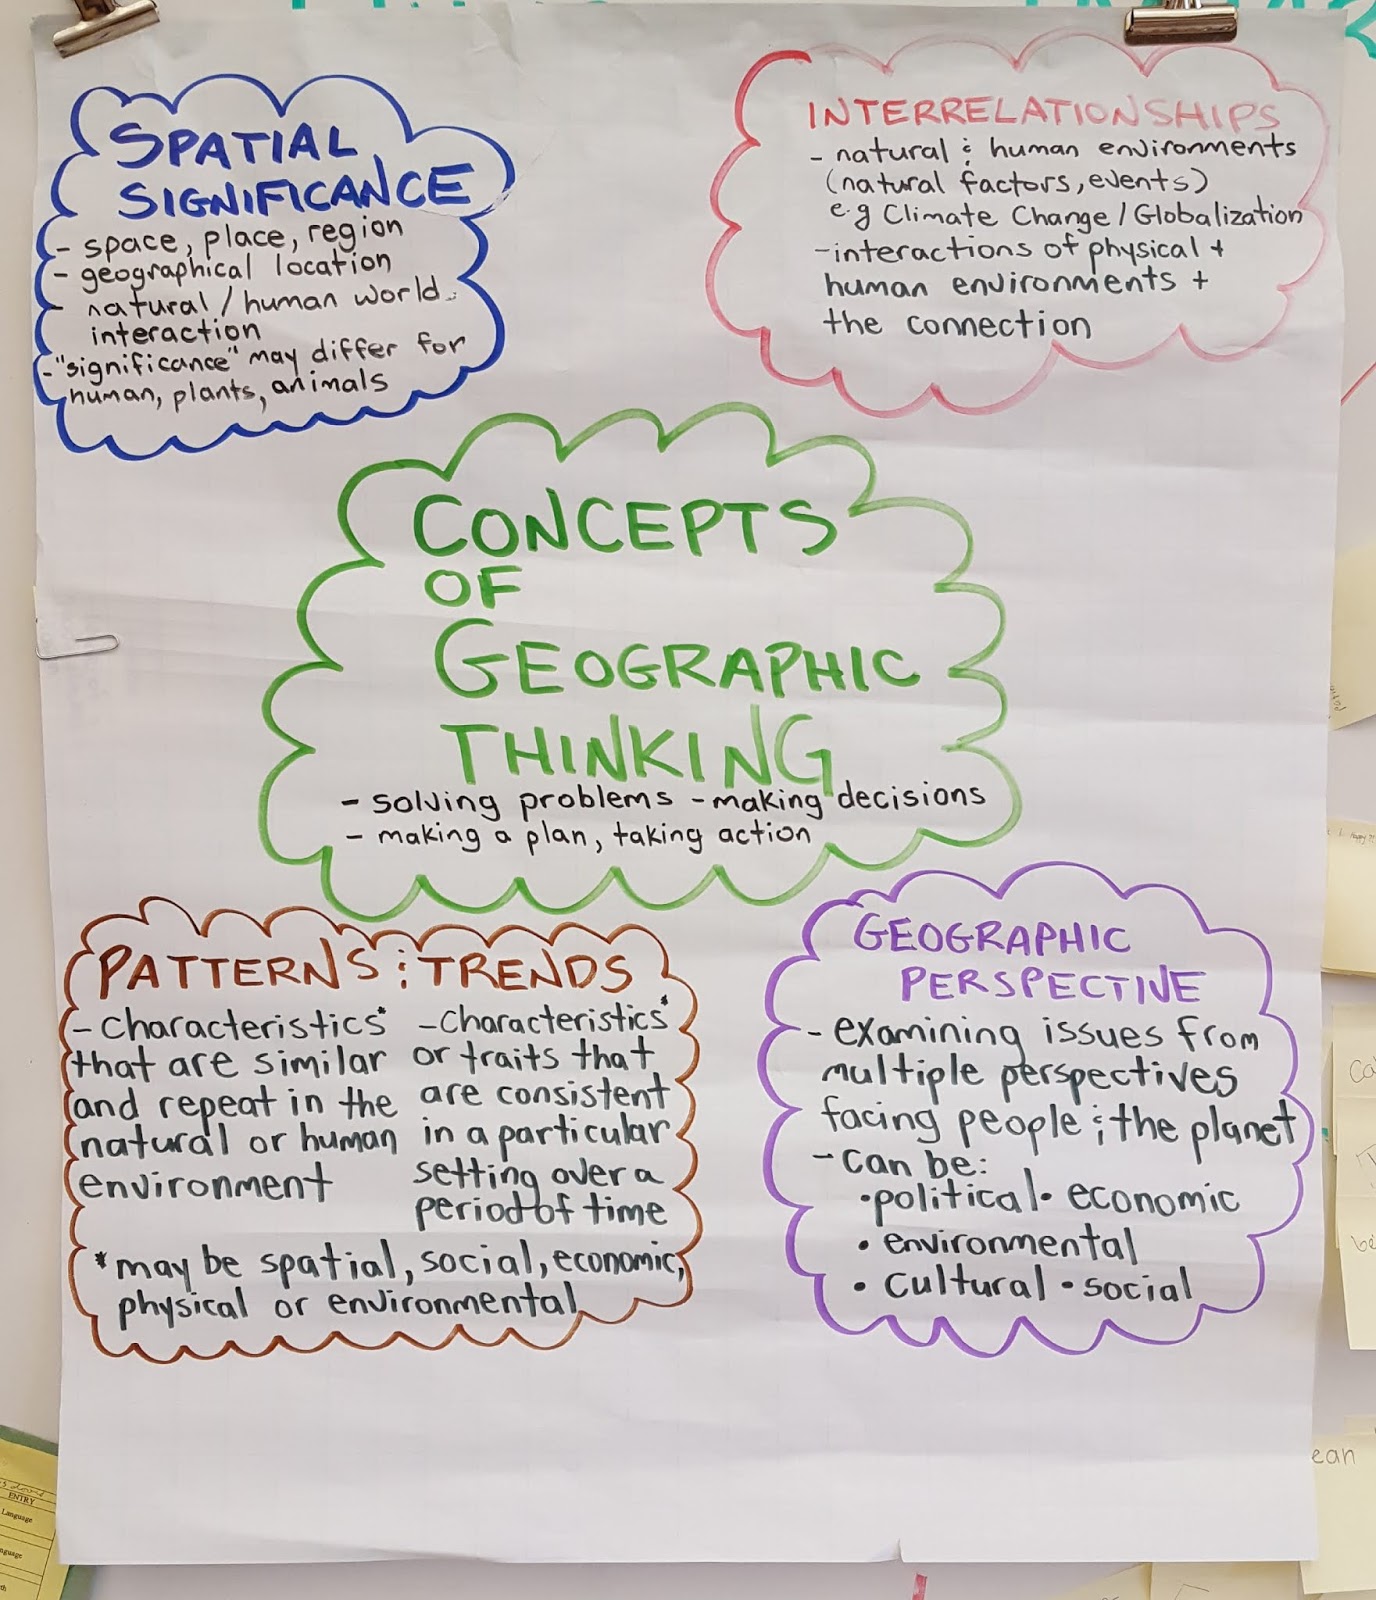 SPATIAL
SIGNIFICANCE
- space, place, region
- geographical location
- natural / human world
interaction
- "significance" may differ for
human, plants, animals
INTERRELATIONSHIPS
- natural & human environments
(natural factors, events)
e.g Climate Change / Globalization
- interactions of physical +
human environments +
the connection
CONCEPTS
OF
GEOGRAPHIC
THINKING
- solving problems - making decisions
- making a plan, taking action
PATTERNS & TRENDS
- Characteristics*
that are similar
and repeat in the
natural or human
environment
- Characteristics*
or traits that
are consistent
in a particular
setting over a
period of time
* may be spatial, social, economic,
physical or environmental
GEOGRAPHIC
PERSPECTIVE
- examining issues from
multiple perspectives
facing people & the planet
- can be:
• political • economic
• environmental
• cultural • social
ean
ENTRY
Language